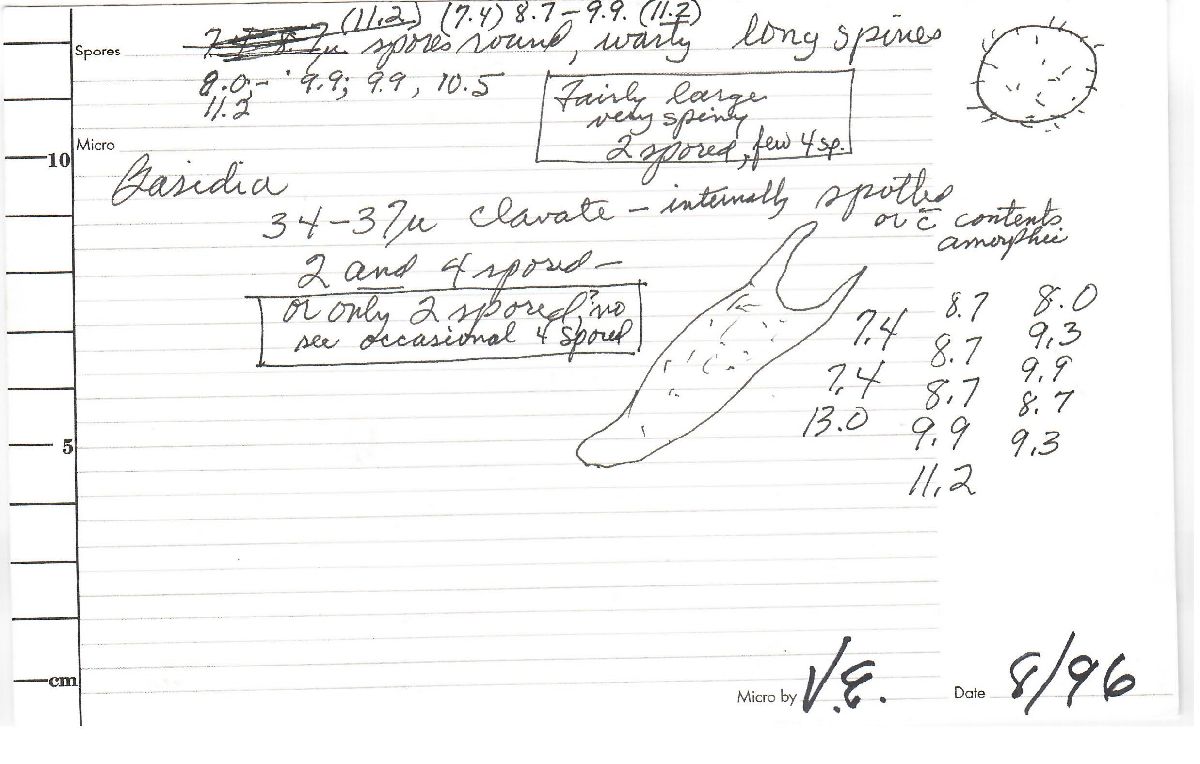 (11.2) (7.4) 8.7 – 9.9. (11.2)
Spores spores round, warty long spines
8.0,- 9.9; 9.9, 10.5
11.2
Fairly large
very spiny
2 spored, few 4 sp.
Micro
10
Basidia
34–37u clavate – internally spotted
or c̄ contents
amorphic
2 and 4 spored –
or only 2 spored,? no
see occasional 4 spored
7.4 8.7 8.0
7.4 8.7 9.3
13.0 8.7 9.9
9.9 8.7
11.2 9.3
5
cm
Micro by V.E. Date 8/96